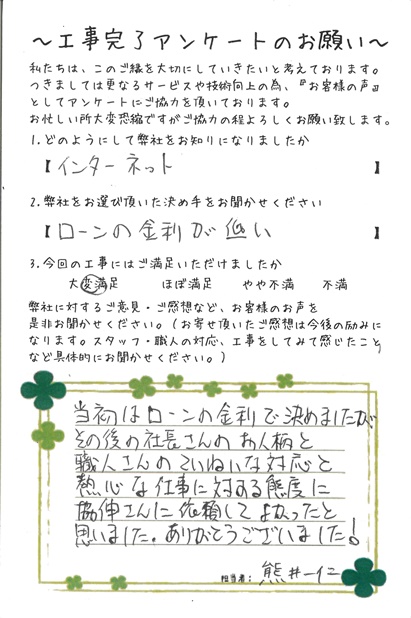 ～工事完了アンケートのお願い～
私たちは、このご縁を大切にしていきたいと考えております。
つきましては更なるサービスや技術向上の為、『お客様の声』
としてアンケートにご協力を頂いております。
お忙しい所大変恐縮ですがご協力の程よろしくお願い致します。
1.どのようにして弊社をお知りになりましたか
【インターネット】
2.弊社をお選び頂いた決め手をお聞かせください
【ローンの金利が低い】
3.今回の工事にはご満足いただけましたか
大変満足 ほぼ満足 やや不満 不満
弊社に対するご意見・ご感想など、お客様のお声を
是非お聞かせください。(お寄せ頂いたご感想は今後の励みに
なります。スタッフ・職人の対応、工事をしてみて感じたこと
など具体的にお聞かせください。)
当初はローンの金利で決めましたが
その後の社長さんのお人柄と
職人さんのていねいな対応と
熱心な仕事に対する態度に
協伸さんに依頼してよかったと
思いました。ありがとうございました!
担当者: 熊井一仁